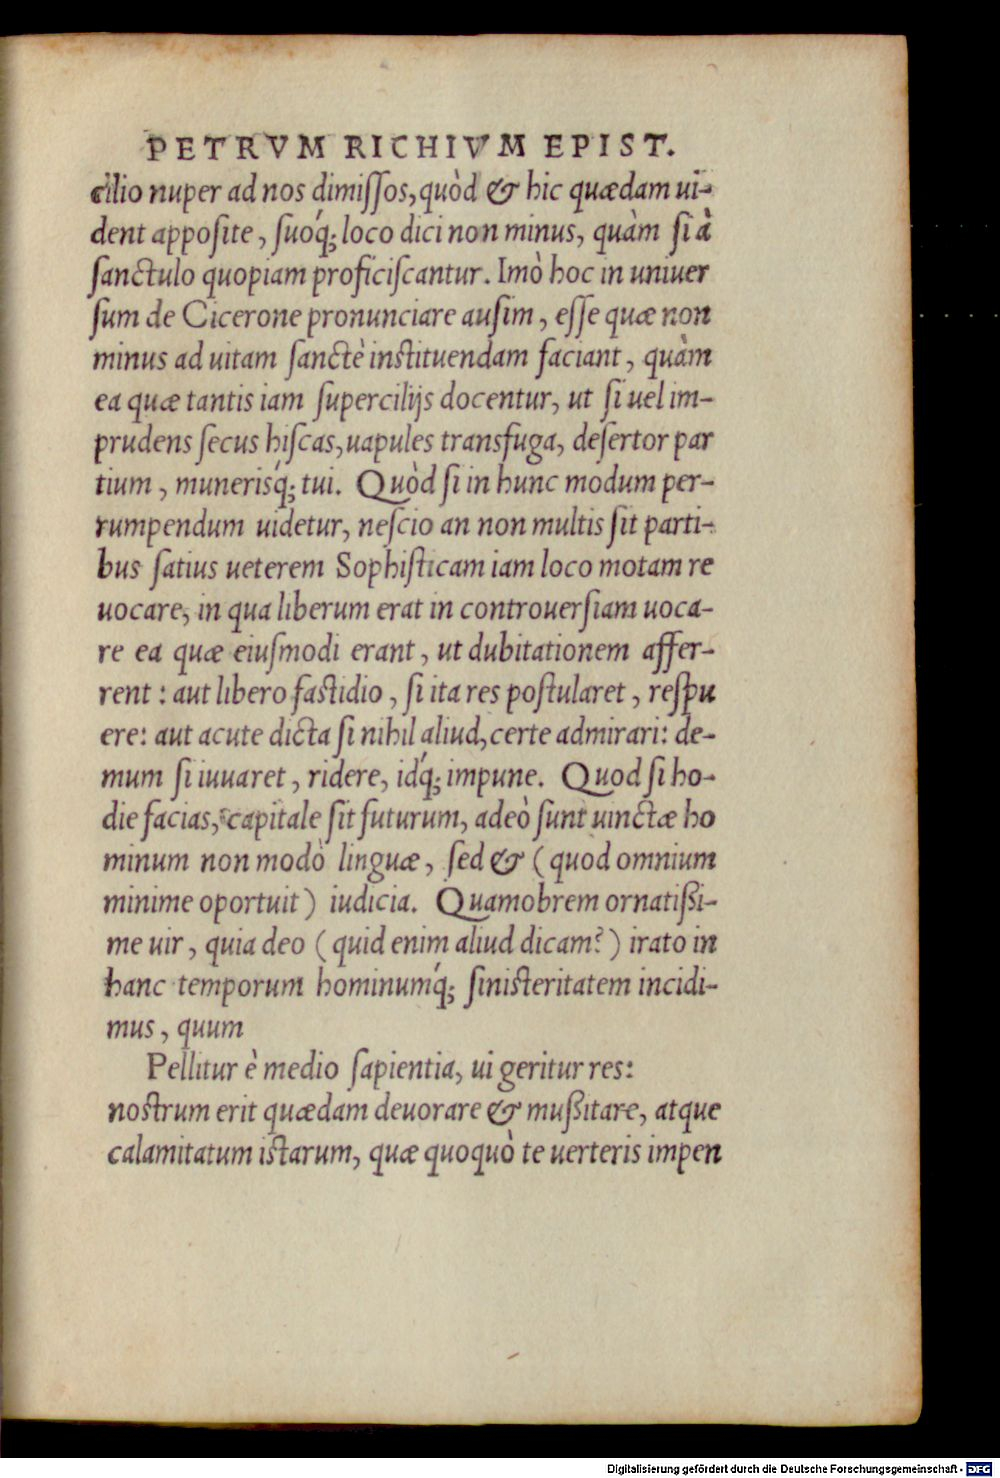 PETRVM RICHIVM EPIST.
cilio nuper ad nos dimiſſos, quòd & hic quædam ui-
dent appoſite, ſuoq́; loco dici non minus, quàm ſi à
ſanctulo quopiam proficiſcantur. Imò hoc in uniuer
ſum de Cicerone pronunciare auſim, eſſe quæ non
minus ad uitam ſanctè inſtituendam faciant, quàm
ea quæ tantis iam ſupercilijs docentur, ut ſi uel im-
prudens ſecus hiſcas, uapules transfuga, deſertor par
tium, munerisq́; tui. Quòd ſi in hunc modum per-
rumpendum uidetur, neſcio an non multis ſit parti-
bus ſatius ueterem Sophiſticam iam loco motam re
uocare, in qua liberum erat in controuerſiam uoca-
re ea quæ eiuſmodi erant, ut dubitationem affer-
rent: aut libero faſtidio, ſi ita res poſtularet, reſpu
ere: aut acute dicta ſi nihil aliud, certe admirari: de-
mum ſi iuuaret, ridere, idq́; impune. Quod ſi ho-
die facias, capitale ſit futurum, adeò ſunt uinctæ ho
minum non modò linguæ, ſed & (quod omnium
minime oportuit) iudicia. Quamobrem ornatißi-
me uir, quia deo (quid enim aliud dicam?) irato in
hanc temporum hominumq́; ſiniſteritatem incidi-
mus, quum
Pellitur è medio ſapientia, ui geritur res:
noſtrum erit quædam deuorare & mußitare, atque
calamitatum iſtarum, quæ quoquò te uerteris impen
Digitalisierung gefördert durch die Deutsche Forschungsgemeinschaft - DFG